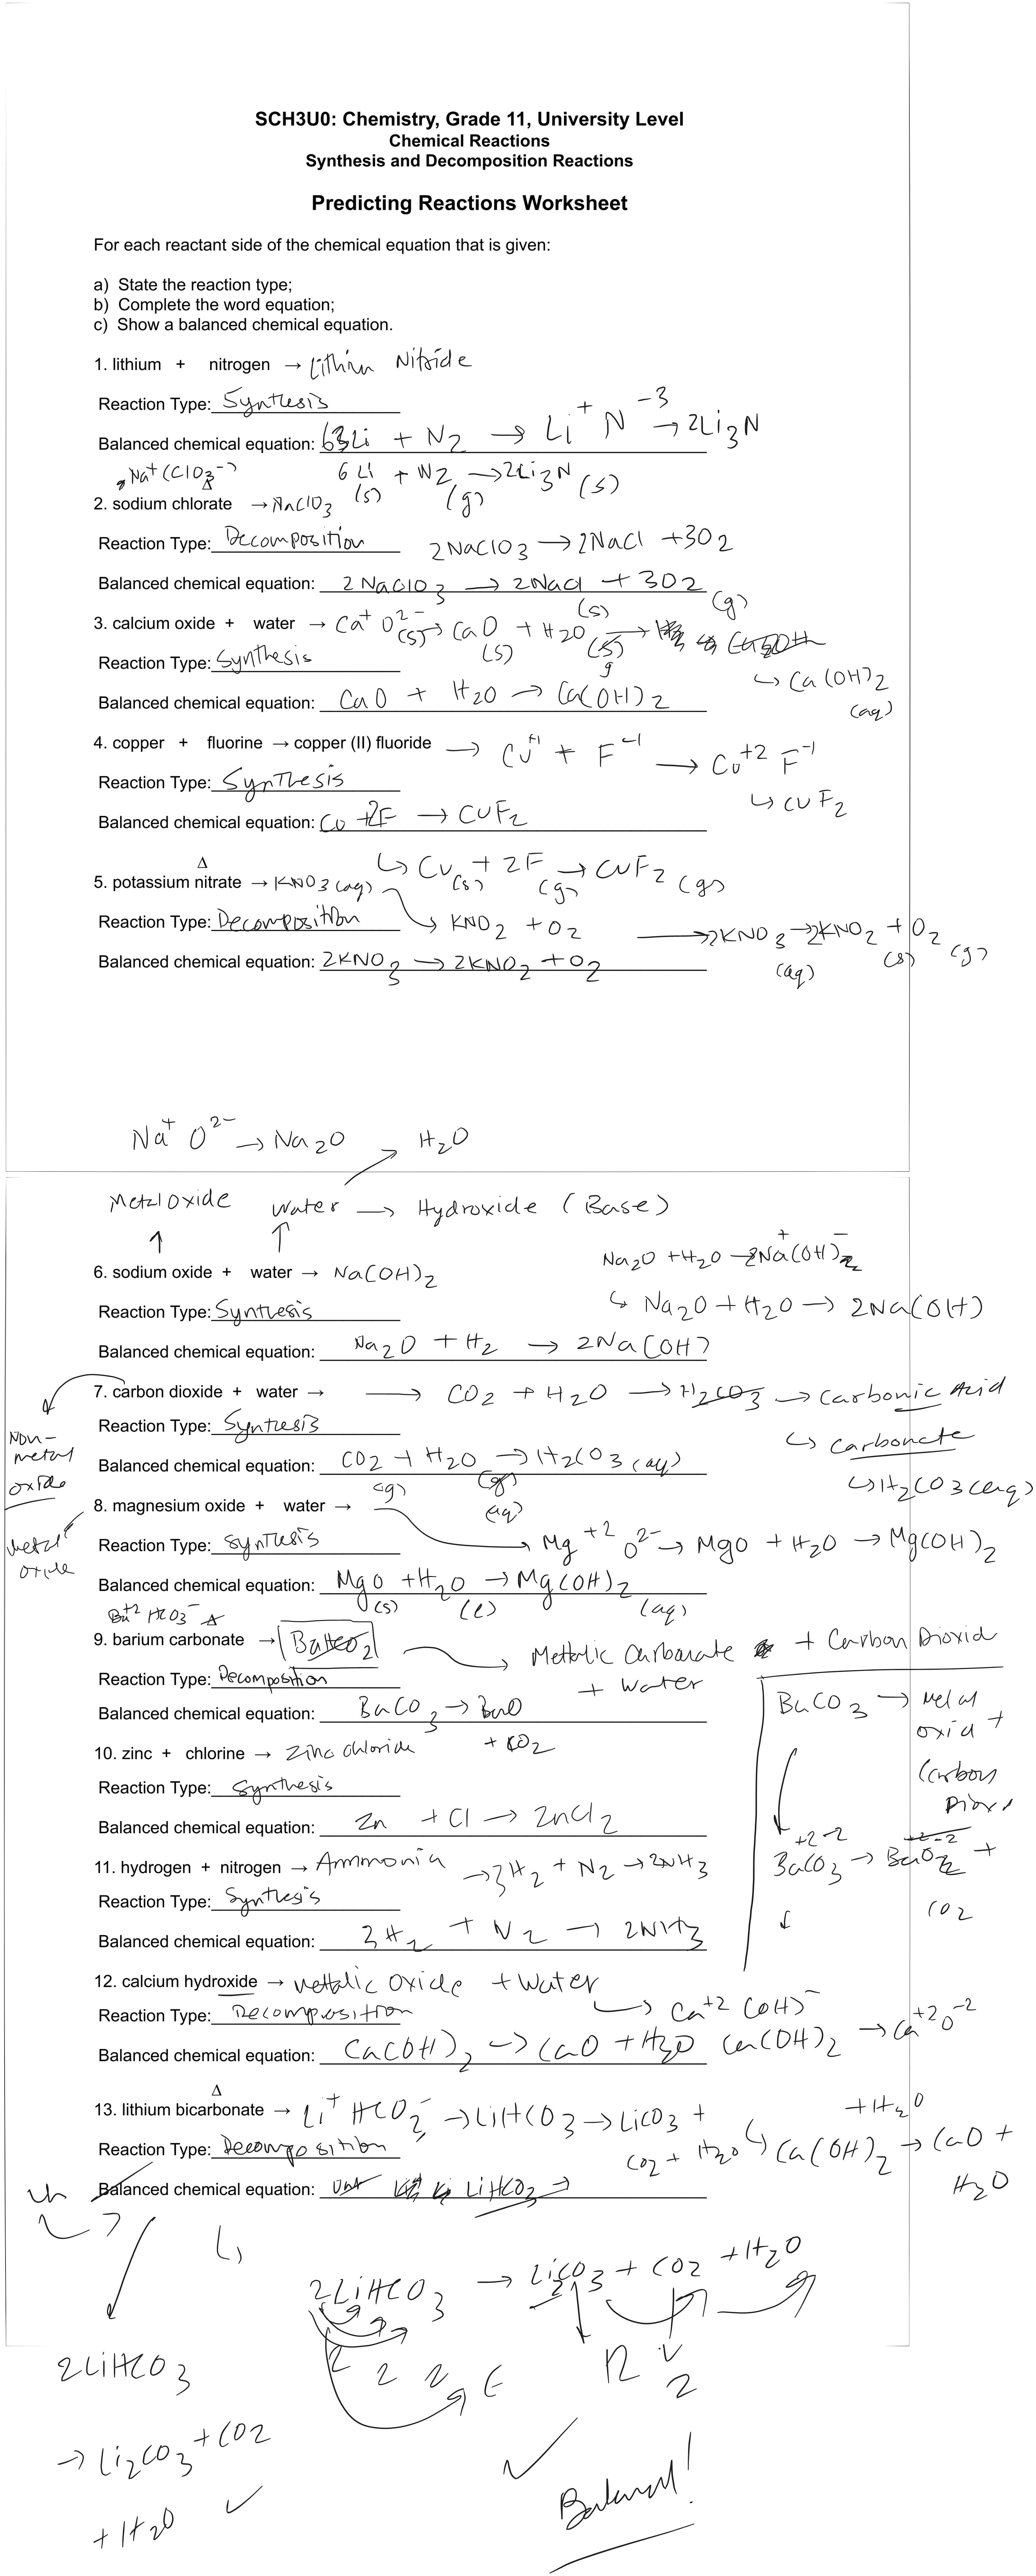 SCH3U0: Chemistry, Grade 11, University Level
Chemical Reactions
Synthesis and Decomposition Reactions
Predicting Reactions Worksheet
For each reactant side of the chemical equation that is given:
a) State the reaction type;
b) Complete the word equation;
c) Show a balanced chemical equation.
1. lithium + nitrogen → Lithium Nitride
Reaction Type: Synthesis
Li⁺ N⁻³ → 2Li₃N
Balanced chemical equation: 6Li + N₂ →
Na⁺ (ClO₃⁻)
6Li + N₂ → 2Li₃N (s)
(s) (g)
2. sodium chlorate → NaClO₃
Reaction Type: Decomposition 2NaClO₃ → 2NaCl + 3O₂
Balanced chemical equation: 2NaClO₃ → 2NaCl + 3O₂
(s) (g)
3. calcium oxide + water → Ca⁺ O²⁻ (s) → CaO + H₂O →
(s) g
Reaction Type: Synthesis
↳ Ca(OH)₂
(aq)
Balanced chemical equation: CaO + H₂O → Ca(OH)₂
4. copper + fluorine → copper (II) fluoride → Cu⁺¹ + F⁻¹ → Cu⁺² F⁻¹
Reaction Type: Synthesis
↳ CuF₂
Balanced chemical equation: Cu + 2F → CuF₂
↳ Cu(s) + 2F(g) → CuF₂(g)
Δ
5. potassium nitrate → KNO₃(aq)
Reaction Type: Decomposition ↳ KNO₂ + O₂ → 2KNO₃ → 2KNO₂ + O₂
(aq) (s) (g)
Balanced chemical equation: 2KNO₃ → 2KNO₂ + O₂
Na⁺ O²⁻ → Na₂O H₂O
Metal Oxide Water → Hydroxide (Base)
Na₂O + H₂O → 2Na⁺(OH)⁻
6. sodium oxide + water → Na(OH)₂
Reaction Type: Synthesis ↳ Na₂O + H₂O → 2Na(OH)
Balanced chemical equation: Na₂O + H₂ → 2Na(OH)
7. carbon dioxide + water → → CO₂ + H₂O → H₂CO₃ → Carbonic Acid
Non-metal oxide
Reaction Type: Synthesis
↳ carbonate
Balanced chemical equation: CO₂ + H₂O → H₂CO₃(aq)
(g) (aq)
↳ H₂CO₃(aq)
8. magnesium oxide + water →
Metal oxide
Reaction Type: Synthesis → Mg⁺² O²⁻ → MgO + H₂O → Mg(OH)₂
Balanced chemical equation: MgO + H₂O → Mg(OH)₂
(s) (l) (aq)
Ba⁺² HCO₃⁻ Δ
9. barium carbonate →
→ Mettalic Carbonate + Carbon Dioxid
+ Water
Reaction Type: Decomposition
Balanced chemical equation: BaCO₃ → BaO
+ CO₂
BaCO₃ → Metal
oxid +
Carbon
Diox
10. zinc + chlorine → Zinc chloride
Reaction Type: Synthesis
Balanced chemical equation: Zn + Cl → ZnCl₂
+2 -2
BaCO₃ → BaO₂ +
CO₂
11. hydrogen + nitrogen → Ammonia → 3H₂ + N₂ → 2NH₃
Reaction Type: Synthesis
Balanced chemical equation: 3H₂ + N₂ → 2NH₃
12. calcium hydroxide → Mettalic Oxide + Water
Reaction Type: Decomposition
↳ Ca⁺² (OH)⁻
Balanced chemical equation: Ca(OH)₂ → CaO + H₂O Ca(OH)₂ → Ca⁺²O⁻²
+ H₂O
Δ
13. lithium bicarbonate → Li⁺ HCO₃⁻ → LiHCO₃ → LiCO₃ +
CO₂ + H₂O
↳ Ca(OH)₂ → CaO +
H₂O
Reaction Type: Decomposition
Balanced chemical equation: LiHCO₃ →
2LiHCO₃ → Li₂CO₃ + CO₂ + H₂O
2LiHCO₃
→ Li₂CO₃ + CO₂
+ H₂O ✓
✓
Balanced!